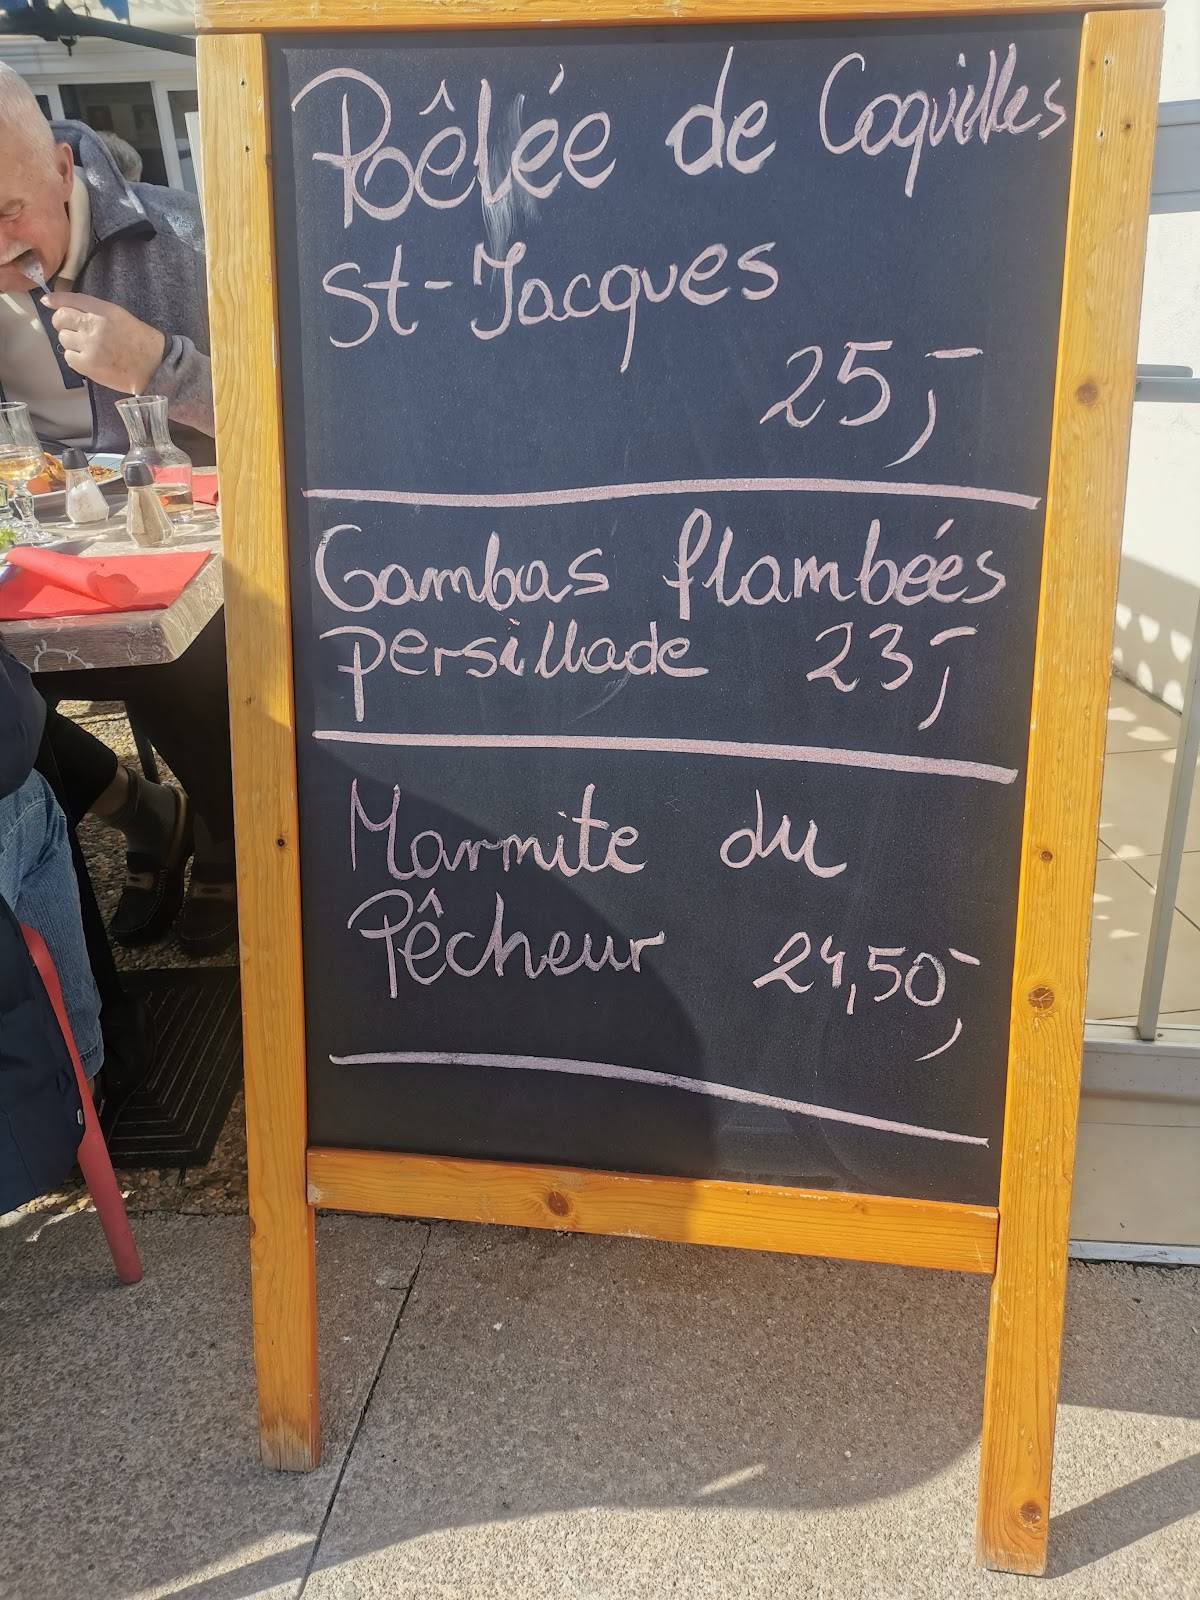 Poêlée de Coquilles
St-Jacques
25,-
Gambas flambées
persillade 23,-
Marmite du
Pêcheur 24,50,-